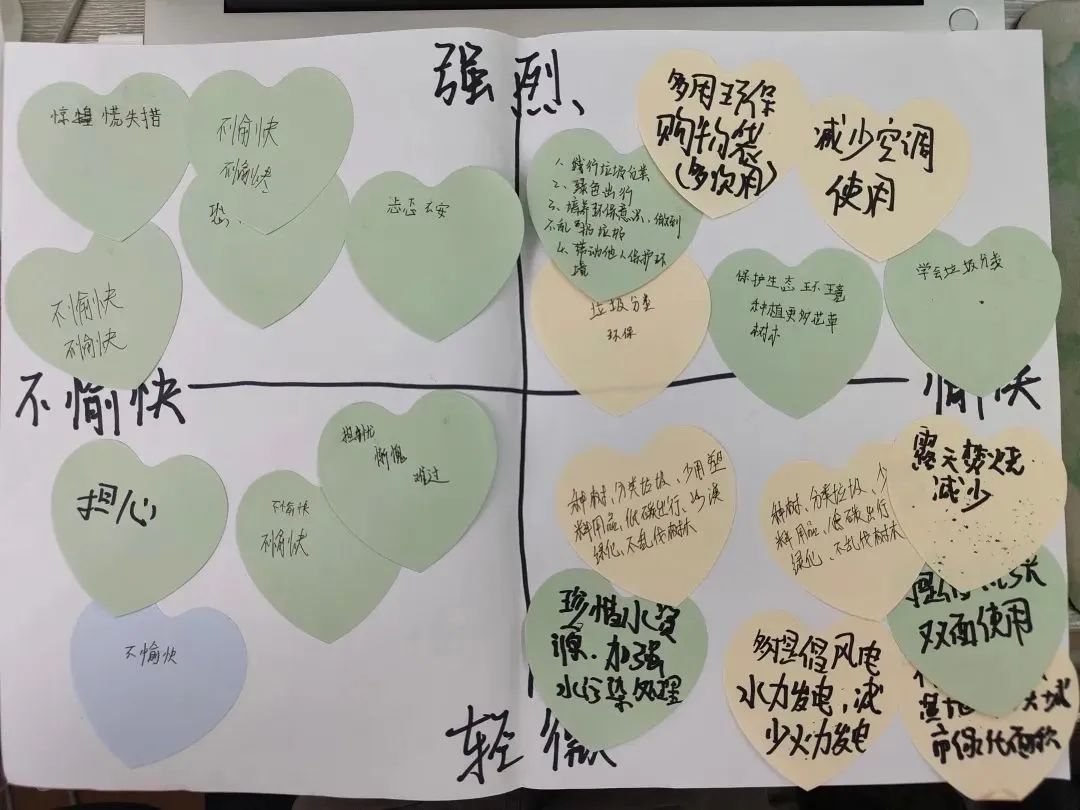 强烈
惊惶慌失措
不愉快
不愉快
忐忑不安
不愉快
不愉快
1、践行垃圾分类
2、绿色出行
3、培养环保意识、做到
不乱扔垃圾
4、带动他人保护环
境
多用环保
购物袋
(多次用)
减少空调
使用
垃圾分类
环保
保护生态环境
种植更多花草
树木
学会垃圾分类
不愉快
愉快
担心
不愉快
不愉快
担忧
惭愧
难过
不愉快
种树、分类垃圾、少用塑
料用品、低碳出行、沙漠
绿化、不乱伐树木
种树、分类垃圾、少
料用品、低碳出行
绿化、不乱伐树木
露天焚烧
减少
珍惜水资
源、加强
水污染处理
多提倡风电
水力发电、减
少火力发电
提倡纸张
双面使用
城
市绿化面积
轻微